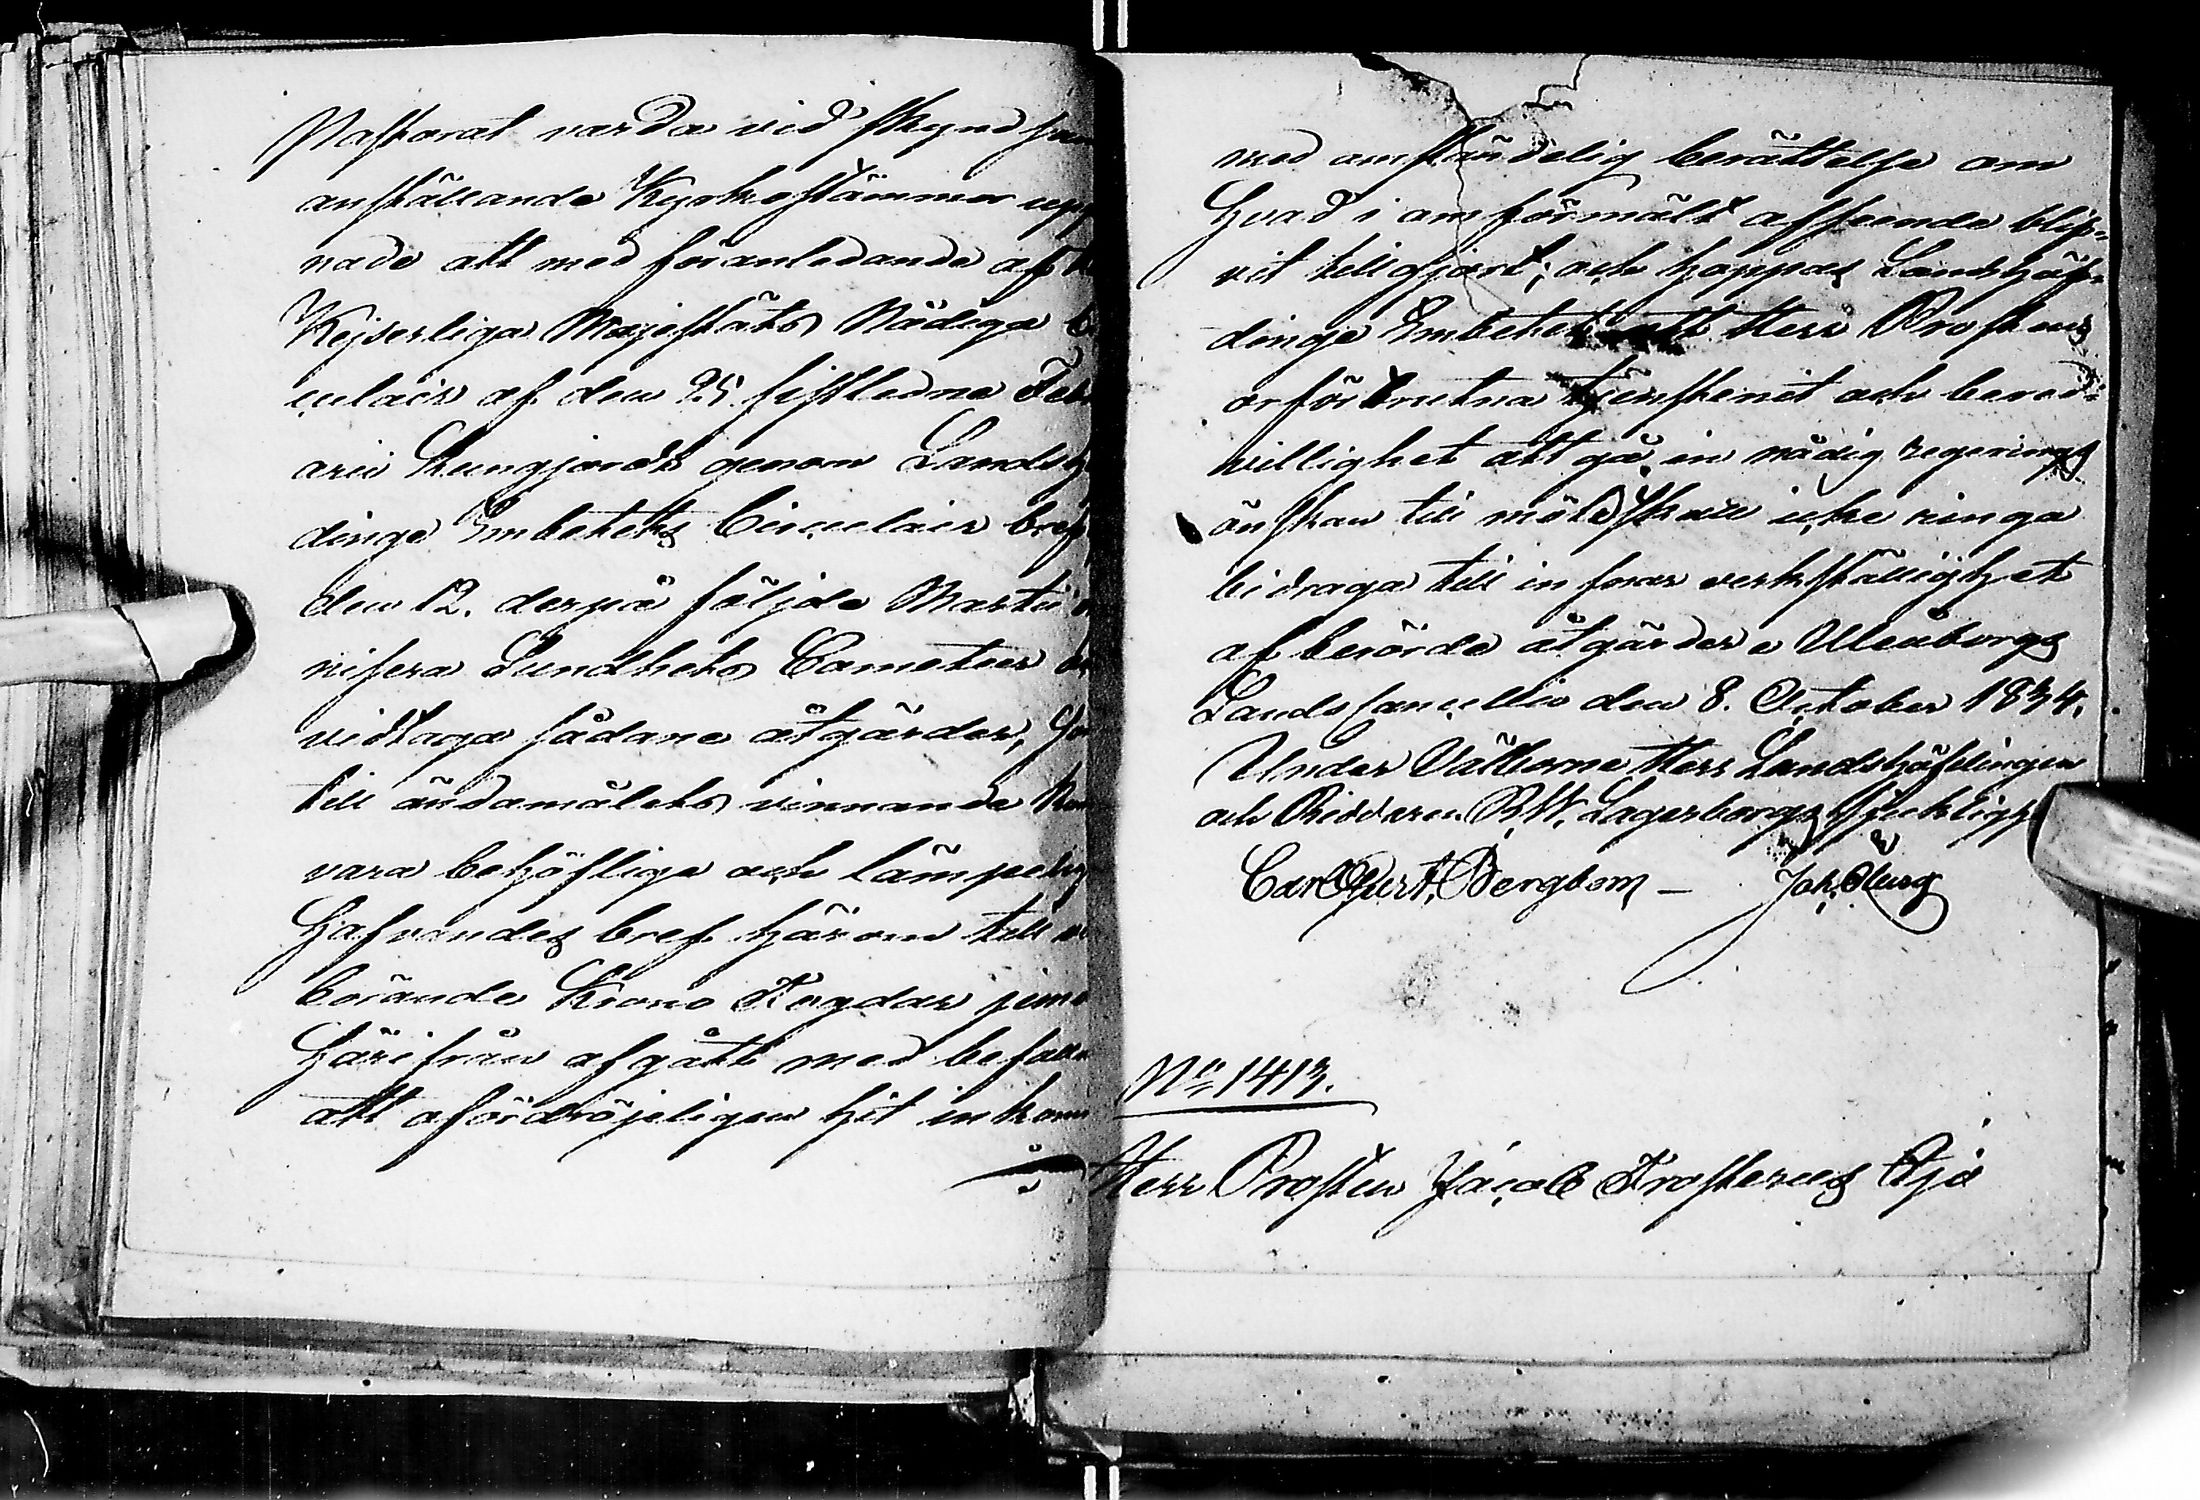 Pastorat varda vid skynd
anställande Kyrkostämmor upp
nade att med föranledande af
Kejserliga Majestäts Nådiga
culair af den 25 sistledne Feb
arii kungjordt genom Landsh
dinge Embetets Circulair bref
den 12. derpå följde Martii
nisera Sundhets Cometeer
vidtaga sådane åtgärder,
till ändamålets vinnande
vara behöflige och lämpelig
hafvandes bref härom till
börande Krono Fogdar
härifrån afgått med befall
att ofördröjeligen hit inkom
med omständelig berättelse om
hvad i omförmält afseende blif-
vit tillgjort; och hoppas Landshöf-
dinge Embetet att Herr Prostens
oförbrutna tjenstenit och bered-
villighet att gå en nådig regerings
önskan till möte skall icke ringa
bidraga till införar verkställighet
af berörde åtgärder. Uleåborgs
Lands Cancellie den 8. October 1834.
Under Vällborne Herr Landshöfdingen
och Riddaren R. W. Lagerborgs sjuklighet
Carl Bergbom — Joh.
No 1413.
Herr Prosten Jacob Frosterus Ijo